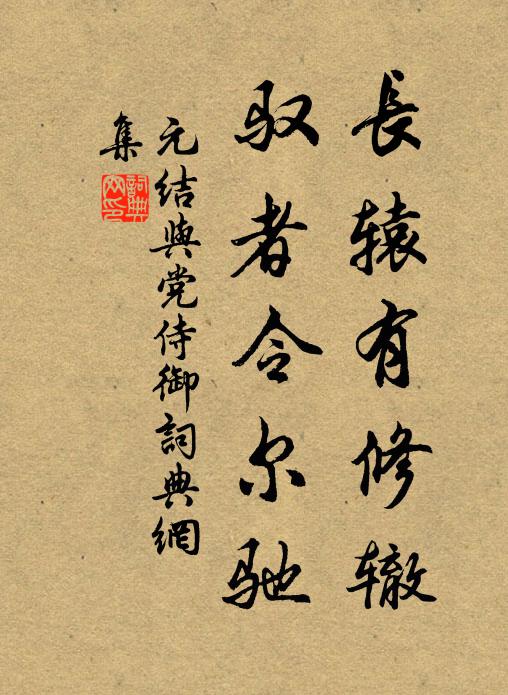 長辕有修辙
驭者令尔驰
元结與党侍御詞典網
集
詞典
网印